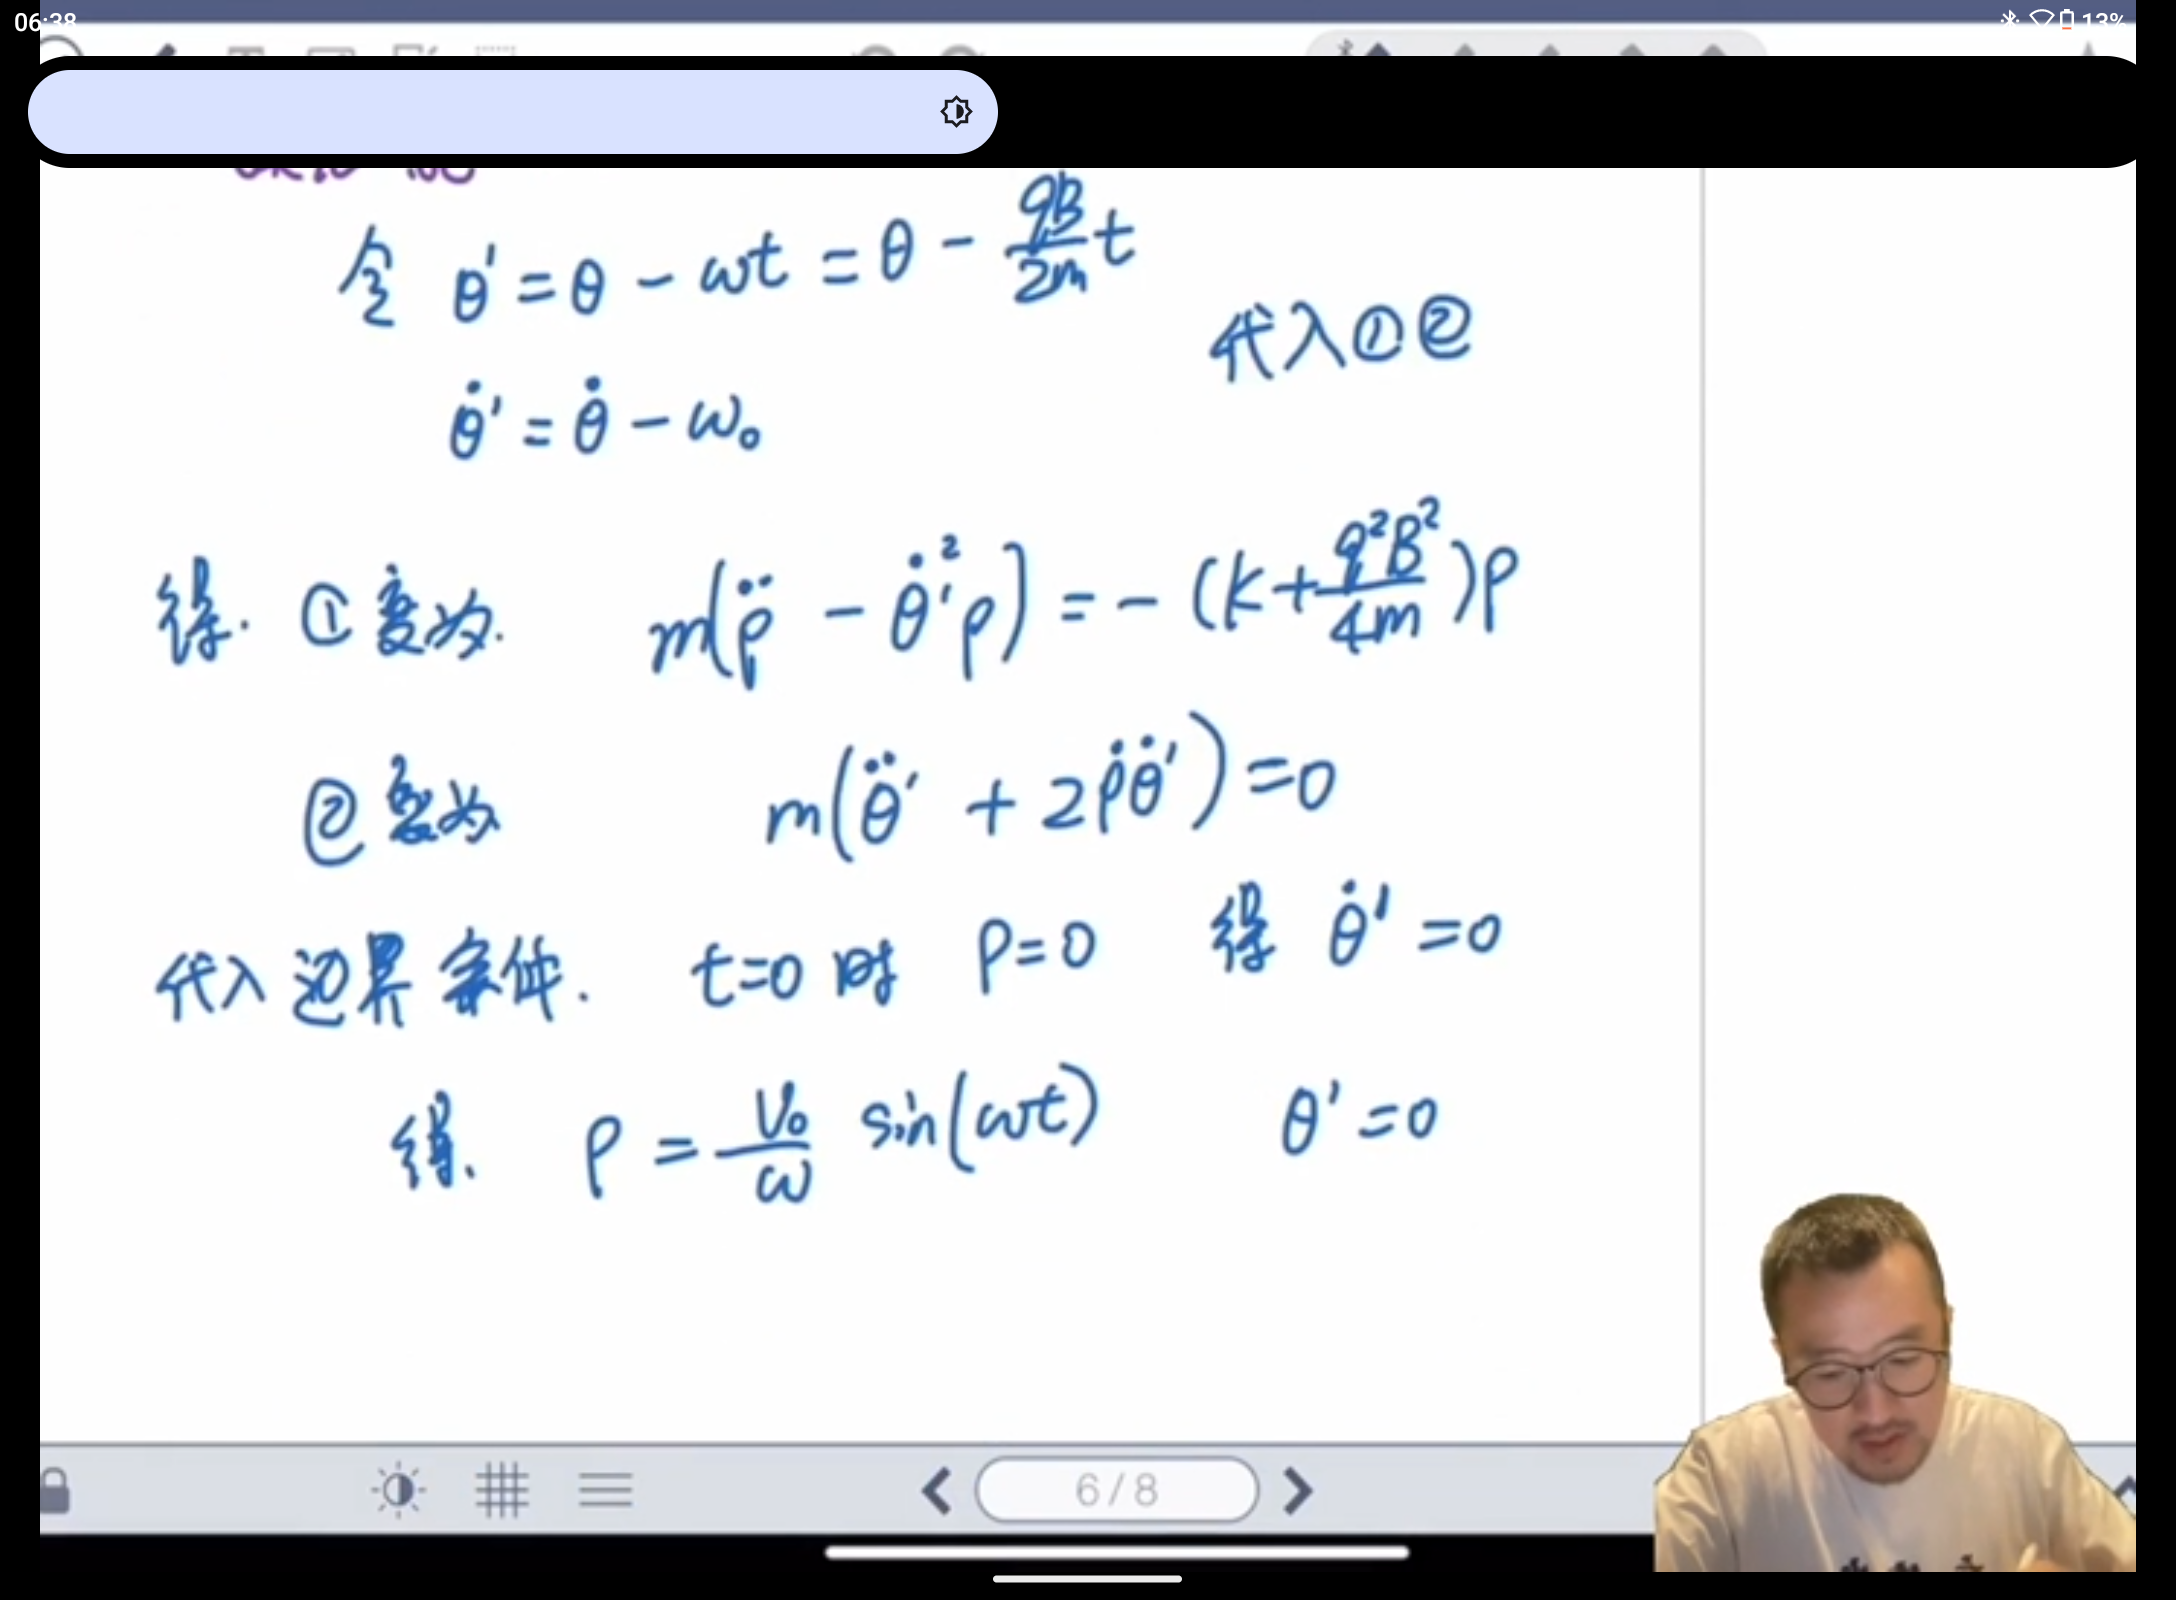 06:38 13%
令 θ' = θ - ωt = θ - qB/2m t
代入①②
θ̇' = θ̇ - ω₀
得. ①变为. m(ρ̈ - θ̇'²ρ) = -(k + q²B²/4m)ρ
②变为 m(θ̈' + 2ρ̇θ̇') = 0
代入边界条件. t=0时 ρ=0 得 θ̇' = 0
得. ρ = V₀/ω sin(ωt) θ' = 0
6 / 8